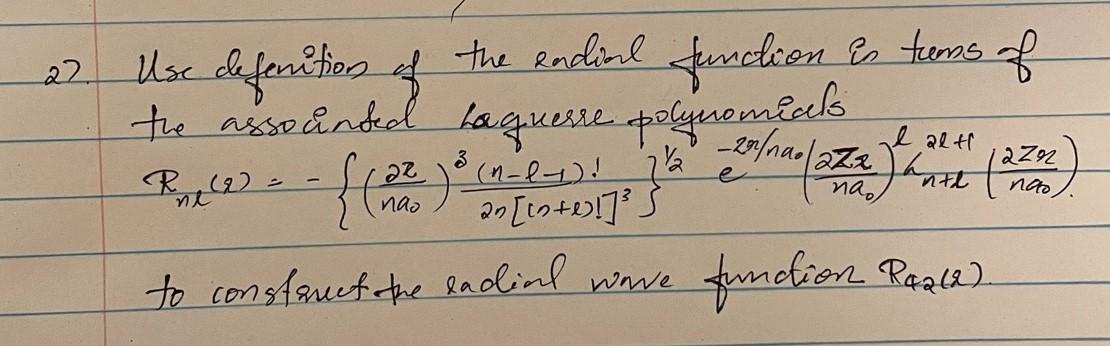 27. Use defenition of the radial function in terms of
the associated Laguerre polynomials
R_{nl}(r) = - { (2Z/na₀)^3 (n-l-1)! / 2n[(n+l)!]^3 }^{1/2} e^{-Zr/na₀} (2Zr/na₀)^l L_{n+l}^{2l+1} (2Zr/na₀).
to construct the radial wave function R_{42}(r).